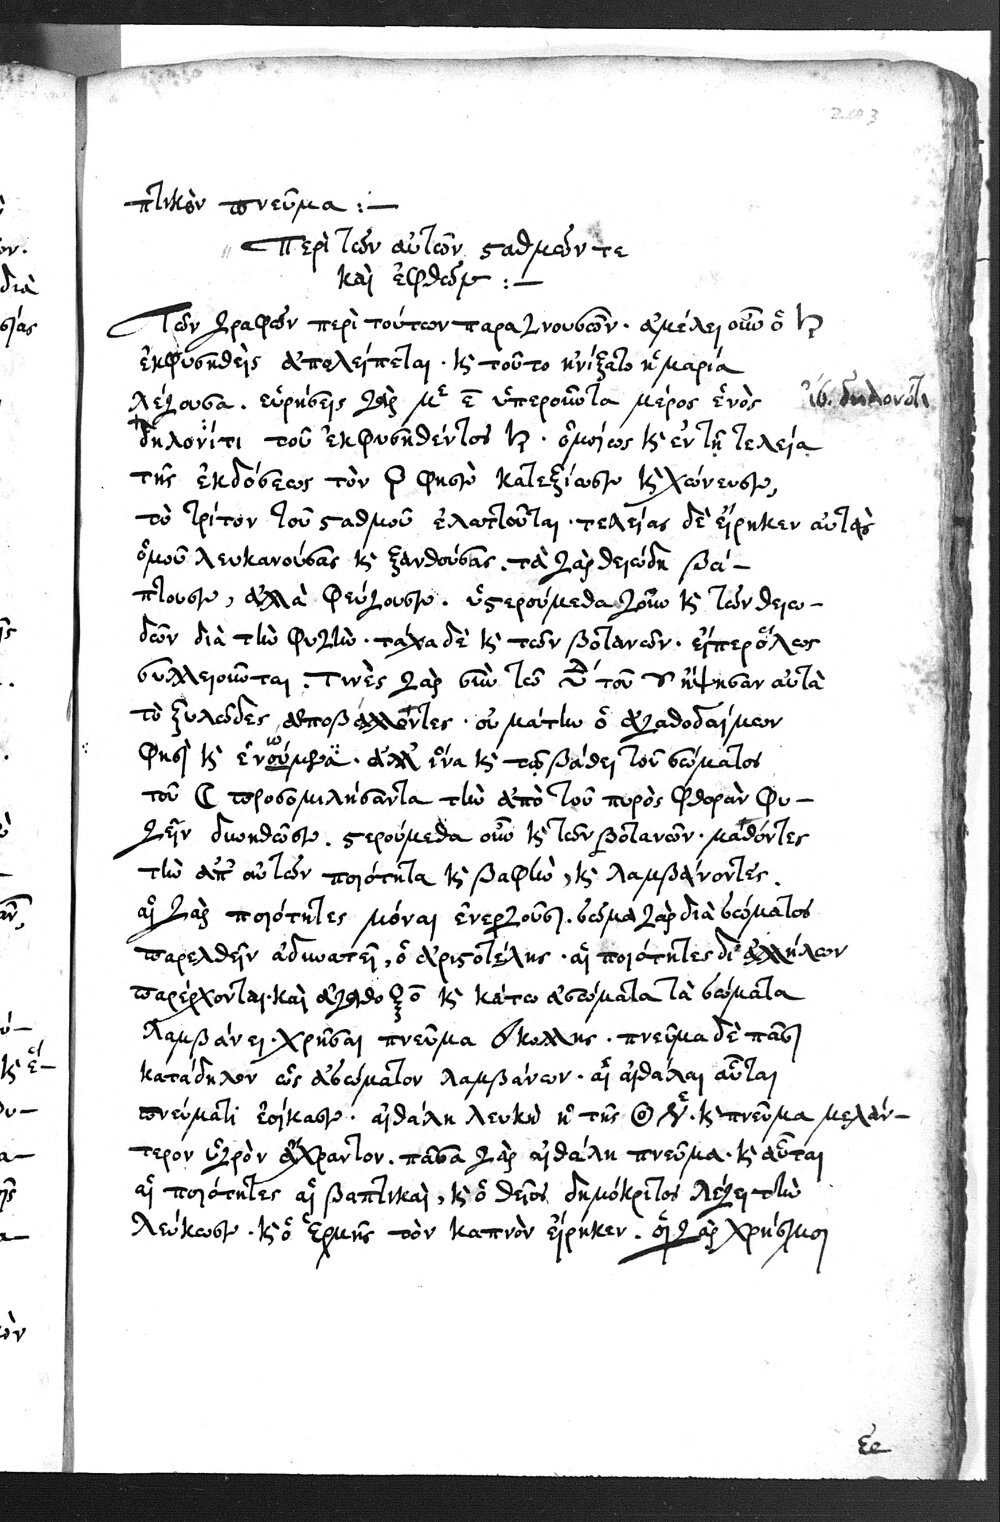 πτικὸν πνεῦμα :—
Περὶ τῶν αὐτῶν σταθμῶν τε
καὶ ἐφθῶν :—
Τῶν γραφῶν περὶ τούτων παραγνουσῶν· ἀμέλει οὖν ὁ ♄
ἐκφυσηθεὶς ἀπολείπεται· κὶ τοῦτο ἠνίξατο ἡ μαρία
λέγουσα. εὑρήσεις γὰρ ε̄ ὑπεροῦντα μέρος ἑνὸς
δηλονίτι τοῦ ἐκφυσηθέντος ♄· ὁμοίως κὶ ἐν τῇ τελείᾳ
τῆς ἐκδόσεως τὸν φησὶν κατεξίωσιν κὶ χώνευσιν,
τὸ τρίτον τοῦ σταθμοῦ ἐλαττοῦται· τελείας δὲ εἴρηκεν αὐτὰς
ὁμοῦ λευκανούσας κὶ ξανθούσας. τὰ γὰρ θειώδη βά-
πτουσιν, ἀλλὰ φεύγουσιν. ὑστερούμεθα γοῦν κὶ τῶν θειω-
δῶν διὰ τὴν φυγήν· τάχα δὲ κὶ τῶν βοτανῶν· εἴπερ ὅλως
συλλειοῦνται. Τινὲς γὰρ σὺν τῷ τοῦ ἥψησαν αὐτὰ
τὸ ξυλῶδες ἀποβάλλοντες· οὐ μάτην ὁ ἀγαθοδαίμων
φησὶ κὶ· ἀλλ' ἵνα κὶ τῷ βάθει τοῦ σώματος
τοῦ ☾ προσομιλήσαντα τὴν ἀπὸ τοῦ πυρὸς φθορὰν φυ-
γεῖν δυνηθῶσιν. στερούμεθα οὖν κὶ τῶν βοτανῶν· μαθόντες
τὴν ἀπ' αὐτῶν ποιότητα κὶ βαφὴν, κὶ λαμβάνοντες.
αἱ γὰρ ποιότητες μόναι ἐνεργοῦσι. σῶμα γὰρ διὰ σώματος
παρελθεῖν ἀδυνατεῖ, ὁ ἀριστοτέλης· αἱ ποιότητες δι' ἀλλήλων
παρέρχονται. καὶ κὶ κάτω ἀσώματα τὰ σώματα
λαμβάνει· χρῆσαι πνεῦμα κόλλης· πνεῦμα δὲ πᾶσι
κατάδηλον ὡς ἀσώματον λαμβάνων· αἱ αἰθάλαι αὗται
πνεύματι ἐοίκασιν· αἰθάλη λευκὴ ἡ τῆς· κὶ πνεῦμα μελάν-
τερον ὑγρὸν ἄχραντον. πᾶσα γὰρ αἰθάλη πνεῦμα· κὶ αὗται
αἱ ποιότητες αἱ βαπτικαὶ, κὶ ὁ θεῖος δημόκριτος λέγει τὴν
λεύκωσιν· κὶ ὁ ἑρμῆς τὸν καπνὸν εἴρηκεν. οἱ γὰρ χρήσιμοι